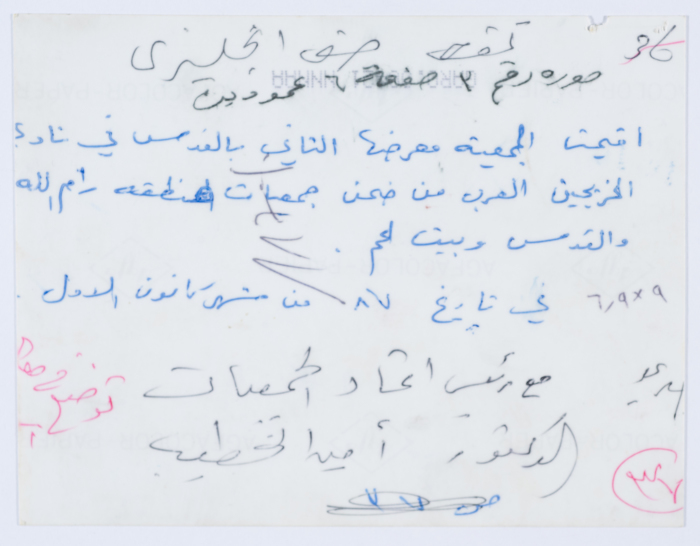 تحته حق انجليزي
صوره رقم صفحة عمودين
اقيمت الجمعية معرضها الثاني بالقدس في نادي
الخريجين العرب من ضمن جمعيات منطقه رام الله
والقدس وبيت لحم .
في تاريخ ٨٧ من شهر كانون الاول .
٦,٩×٩
مع رئيس اتحاد الجمعيات
الدكتور أمين الخطيب
توضع في صفحة